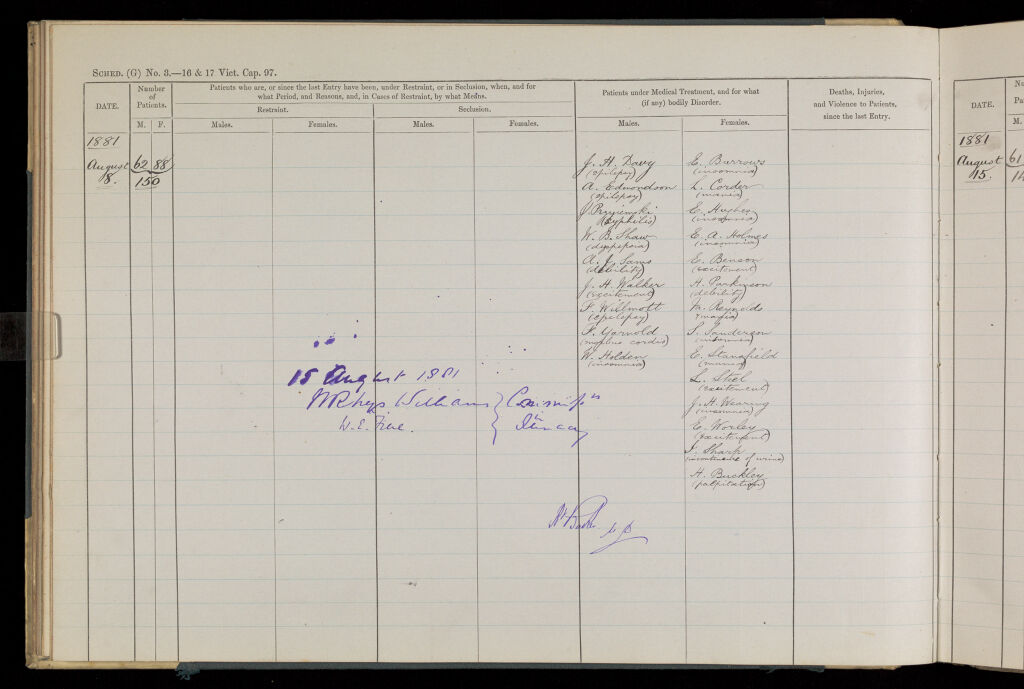 SCHED. (G) No. 3.—16 & 17 Vict. Cap. 97.
DATE.
Number
of
Patients.
M. F.
Patients who are, or since the last Entry have been, under Restraint, or in Seclusion, when, and for
what Period, and Reasons, and, in Cases of Restraint, by what Means.
Restraint.
Seclusion.
Males. Females. Males. Females.
Patients under Medical Treatment, and for what
(if any) bodily Disorder.
Males. Females.
Deaths, Injuries,
and Violence to Patients,
since the last Entry.
1881
August 62 88
8. 150
J. H. Davy
(epilepsy)
A. Edmondson
(epilepsy)
J Pryiemski
(syphilis)
W. B. Shaw
(dyspepsia)
A. J. Sams
(debility)
J. H. Walker
(excitement)
F. Willmott
(epilepsy)
F. Yarnold
(morbus cordis)
W. Holden
(insomnia)
E. Burrows
(insomnia)
L. Corder
(mania)
E. Hughes
(insomnia)
E. A. Holmes
(insomnia)
E. Benson
(excitement)
H. Parkinson
(debility)
M. Reynolds
(mania)
S. Sanderson
(insomnia)
E. Stansfield
(mania)
L. Stiel
(excitement)
J. H. Wearing
(insomnia)
E. Worley
(excitement)
J. Sharp
(incontinence of urine)
H. Buckley
(palpitation)
15 August 1881
W Rhys Williams
W. E. Frere.
Commissrs
in
Lunacy
DATE.
M.
1881
August 61
15.